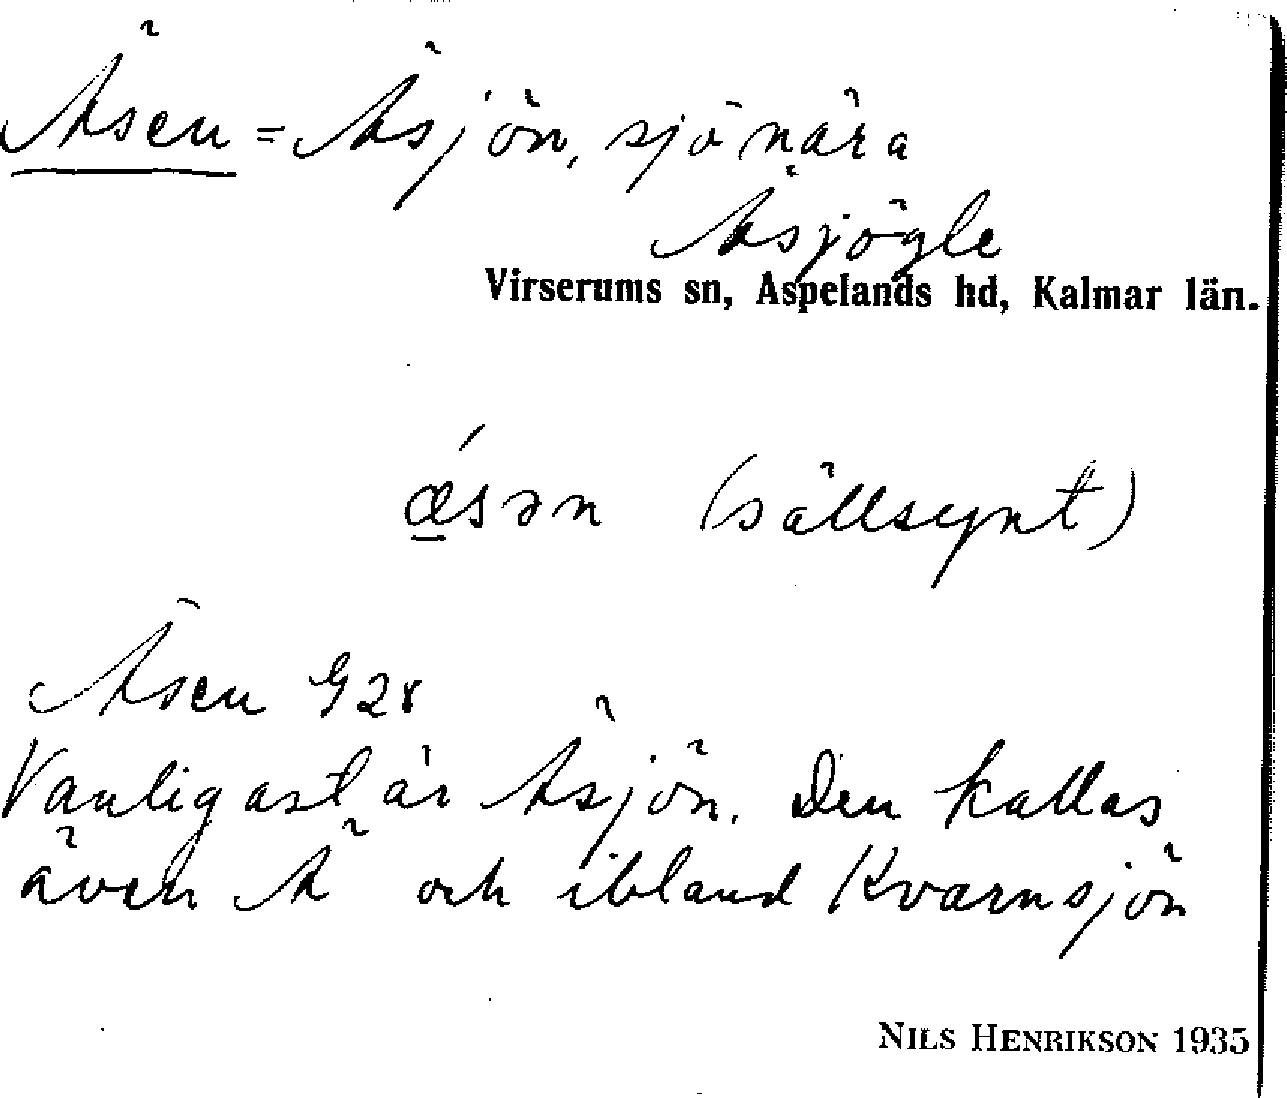 Äsen = Äsjön, sjö nära
Äsjögle
Virserums sn, Aspelands hd, Kalmar län.
ǽsən (sällsynt)
Äsen G28
Vanligast är Äsjön. Den kallas
även Ä och ibland Kvarnsjön
NILS HENRIKSON 1935